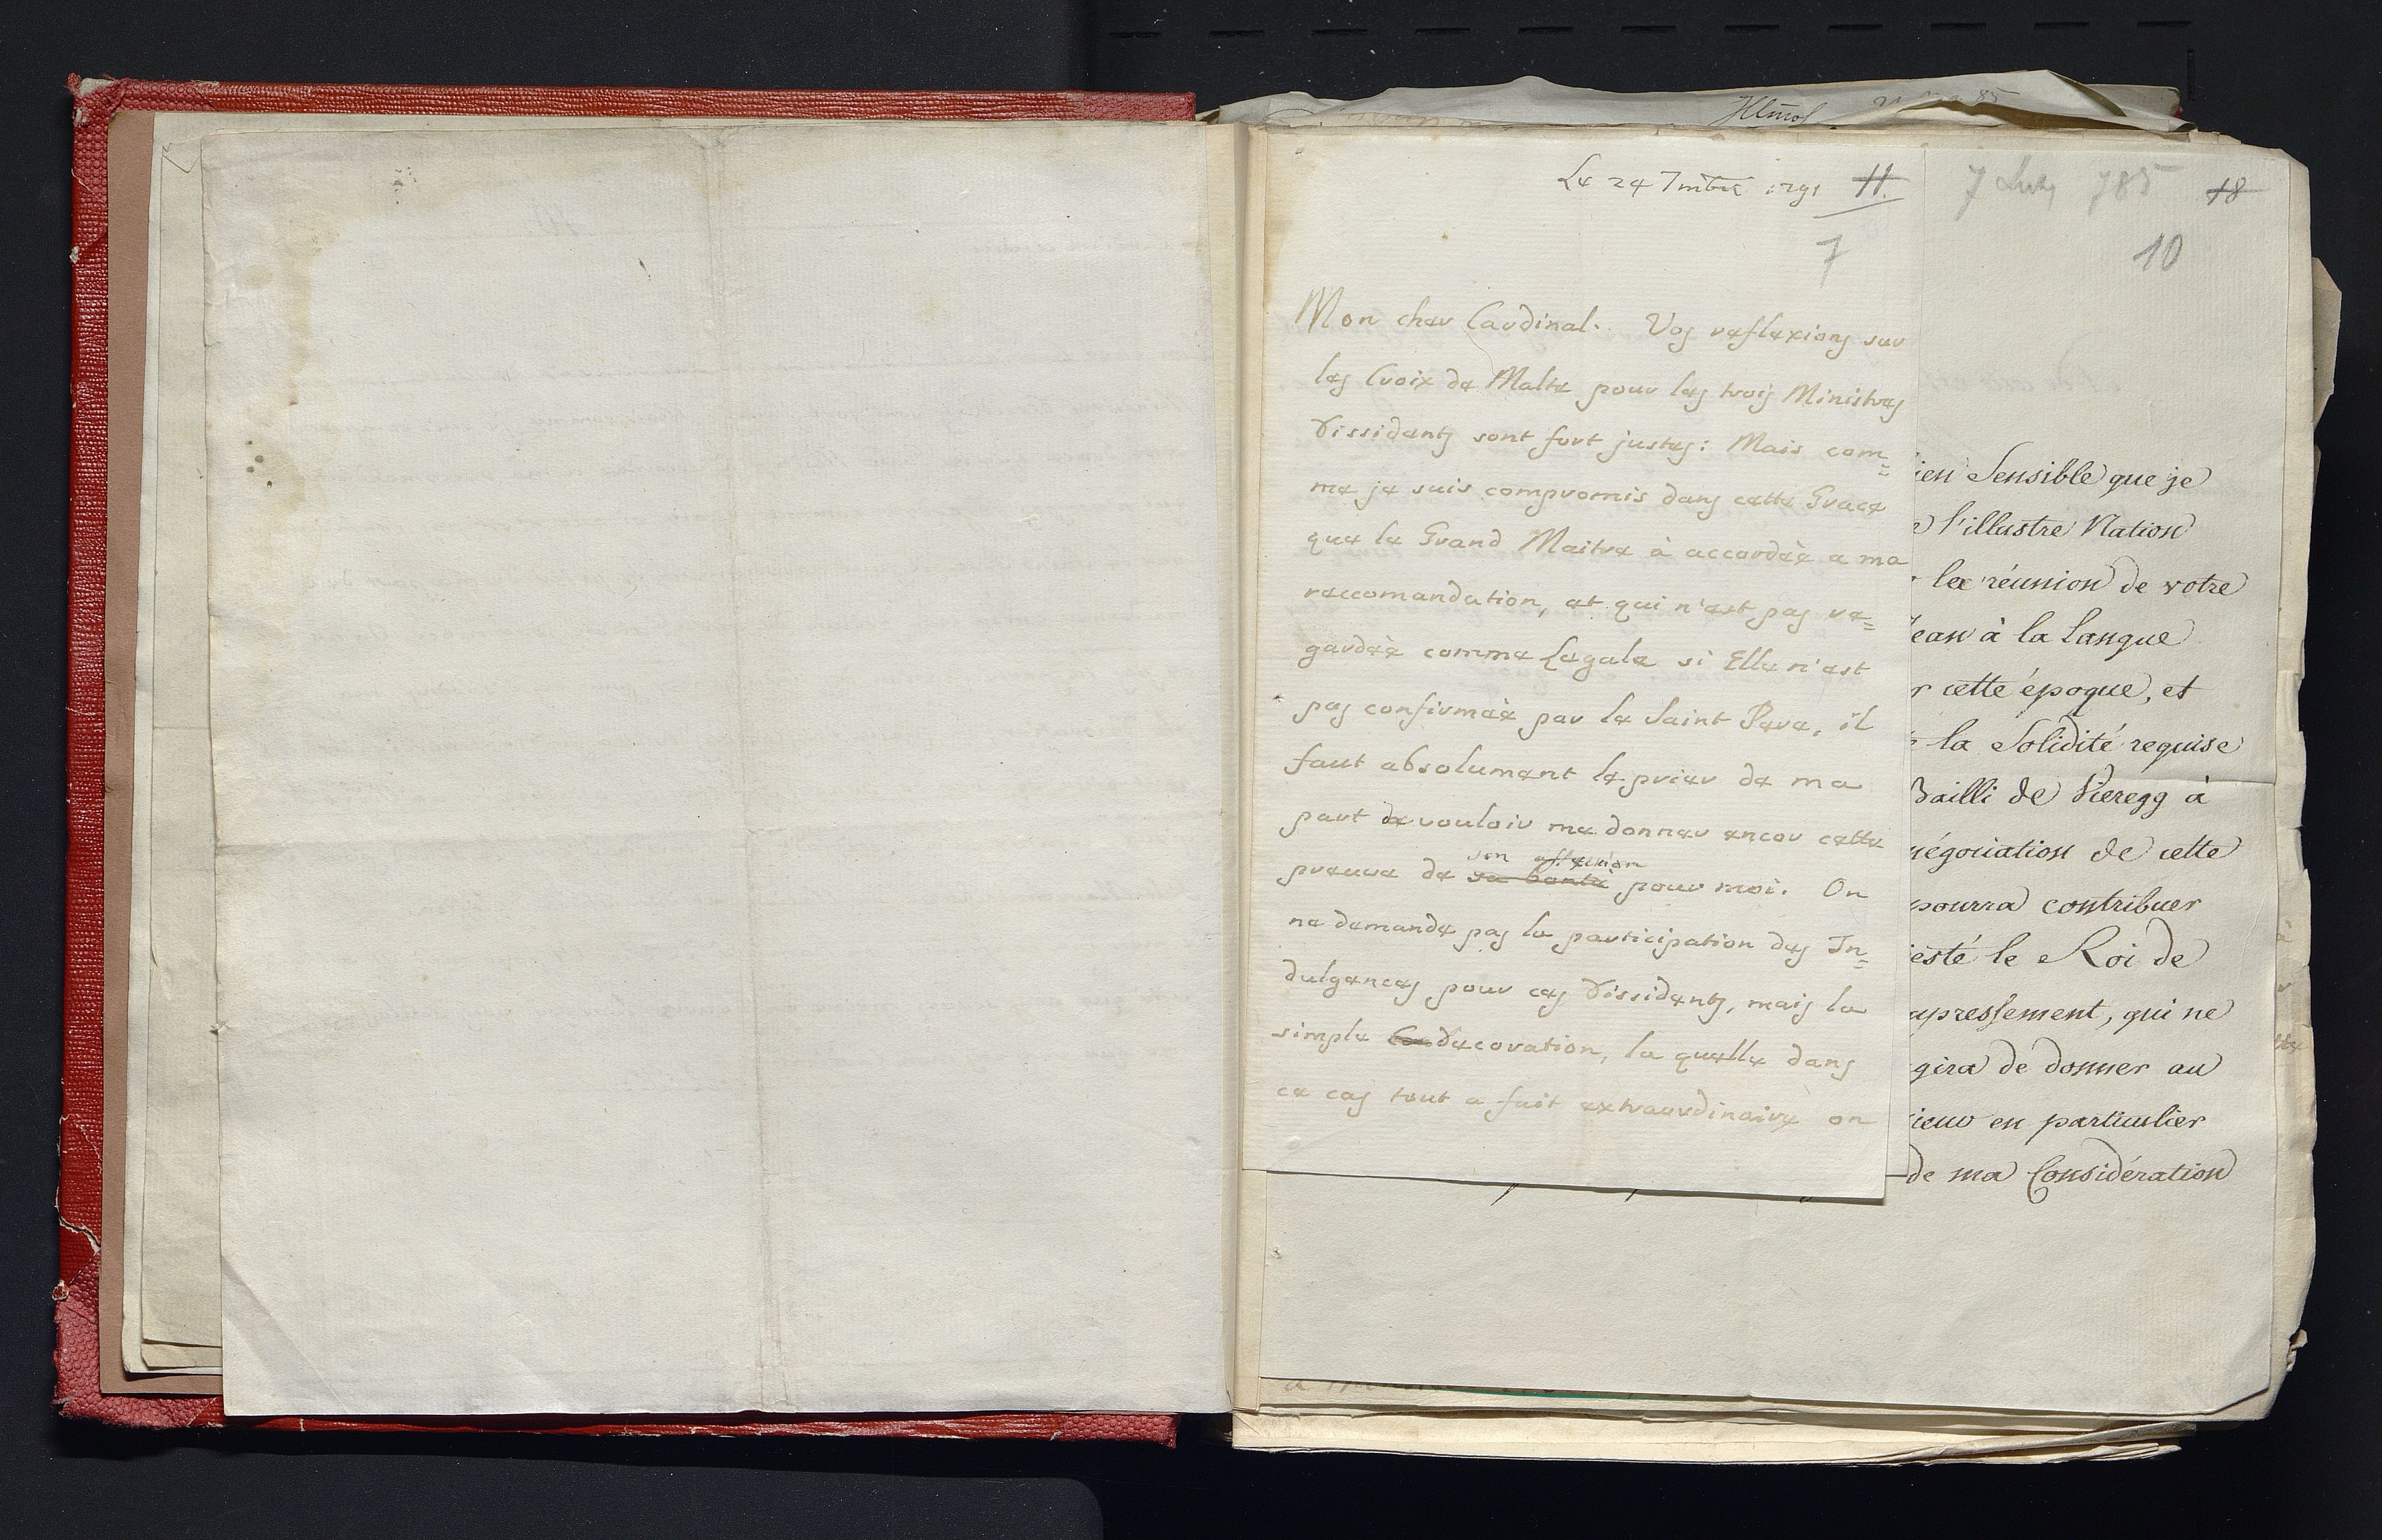 Le 24 7mbre 1791 11.
7
Mon cher Cardinal. Vos reflexions sur
les Croix de Malte pour les trois Ministres
dissidents sont fort justes: Mais com=
me je suis compromis dans cette Grace
que le Grand Maitre à accordée a ma
raccomandation, et qui n'est pas re=
gardée comme Legale si Elle n'est
pas confirmée par le Saint Pere, il
faut absolument le prier de ma
part de vouloir me donner encor cette
son affection
preuve de sa bonté pour moi. On
ne demande pas la participation des In=
dulgences pour ces dissidents, mais la
simple decoration, la quelle dans
ce cas tout a fait extraordinaire on
785 18
10
ien Sensible que je
l'illustre Nation
la réunion de votre
Jean à la Langue
r cette époque, et
la Solidité requise
Bailli de Vieregg à
négociation de cette
pourra contribuer
jesté le Roi de
mpressement, qui ne
gira de donner au
ieur en particulier
de ma Considération